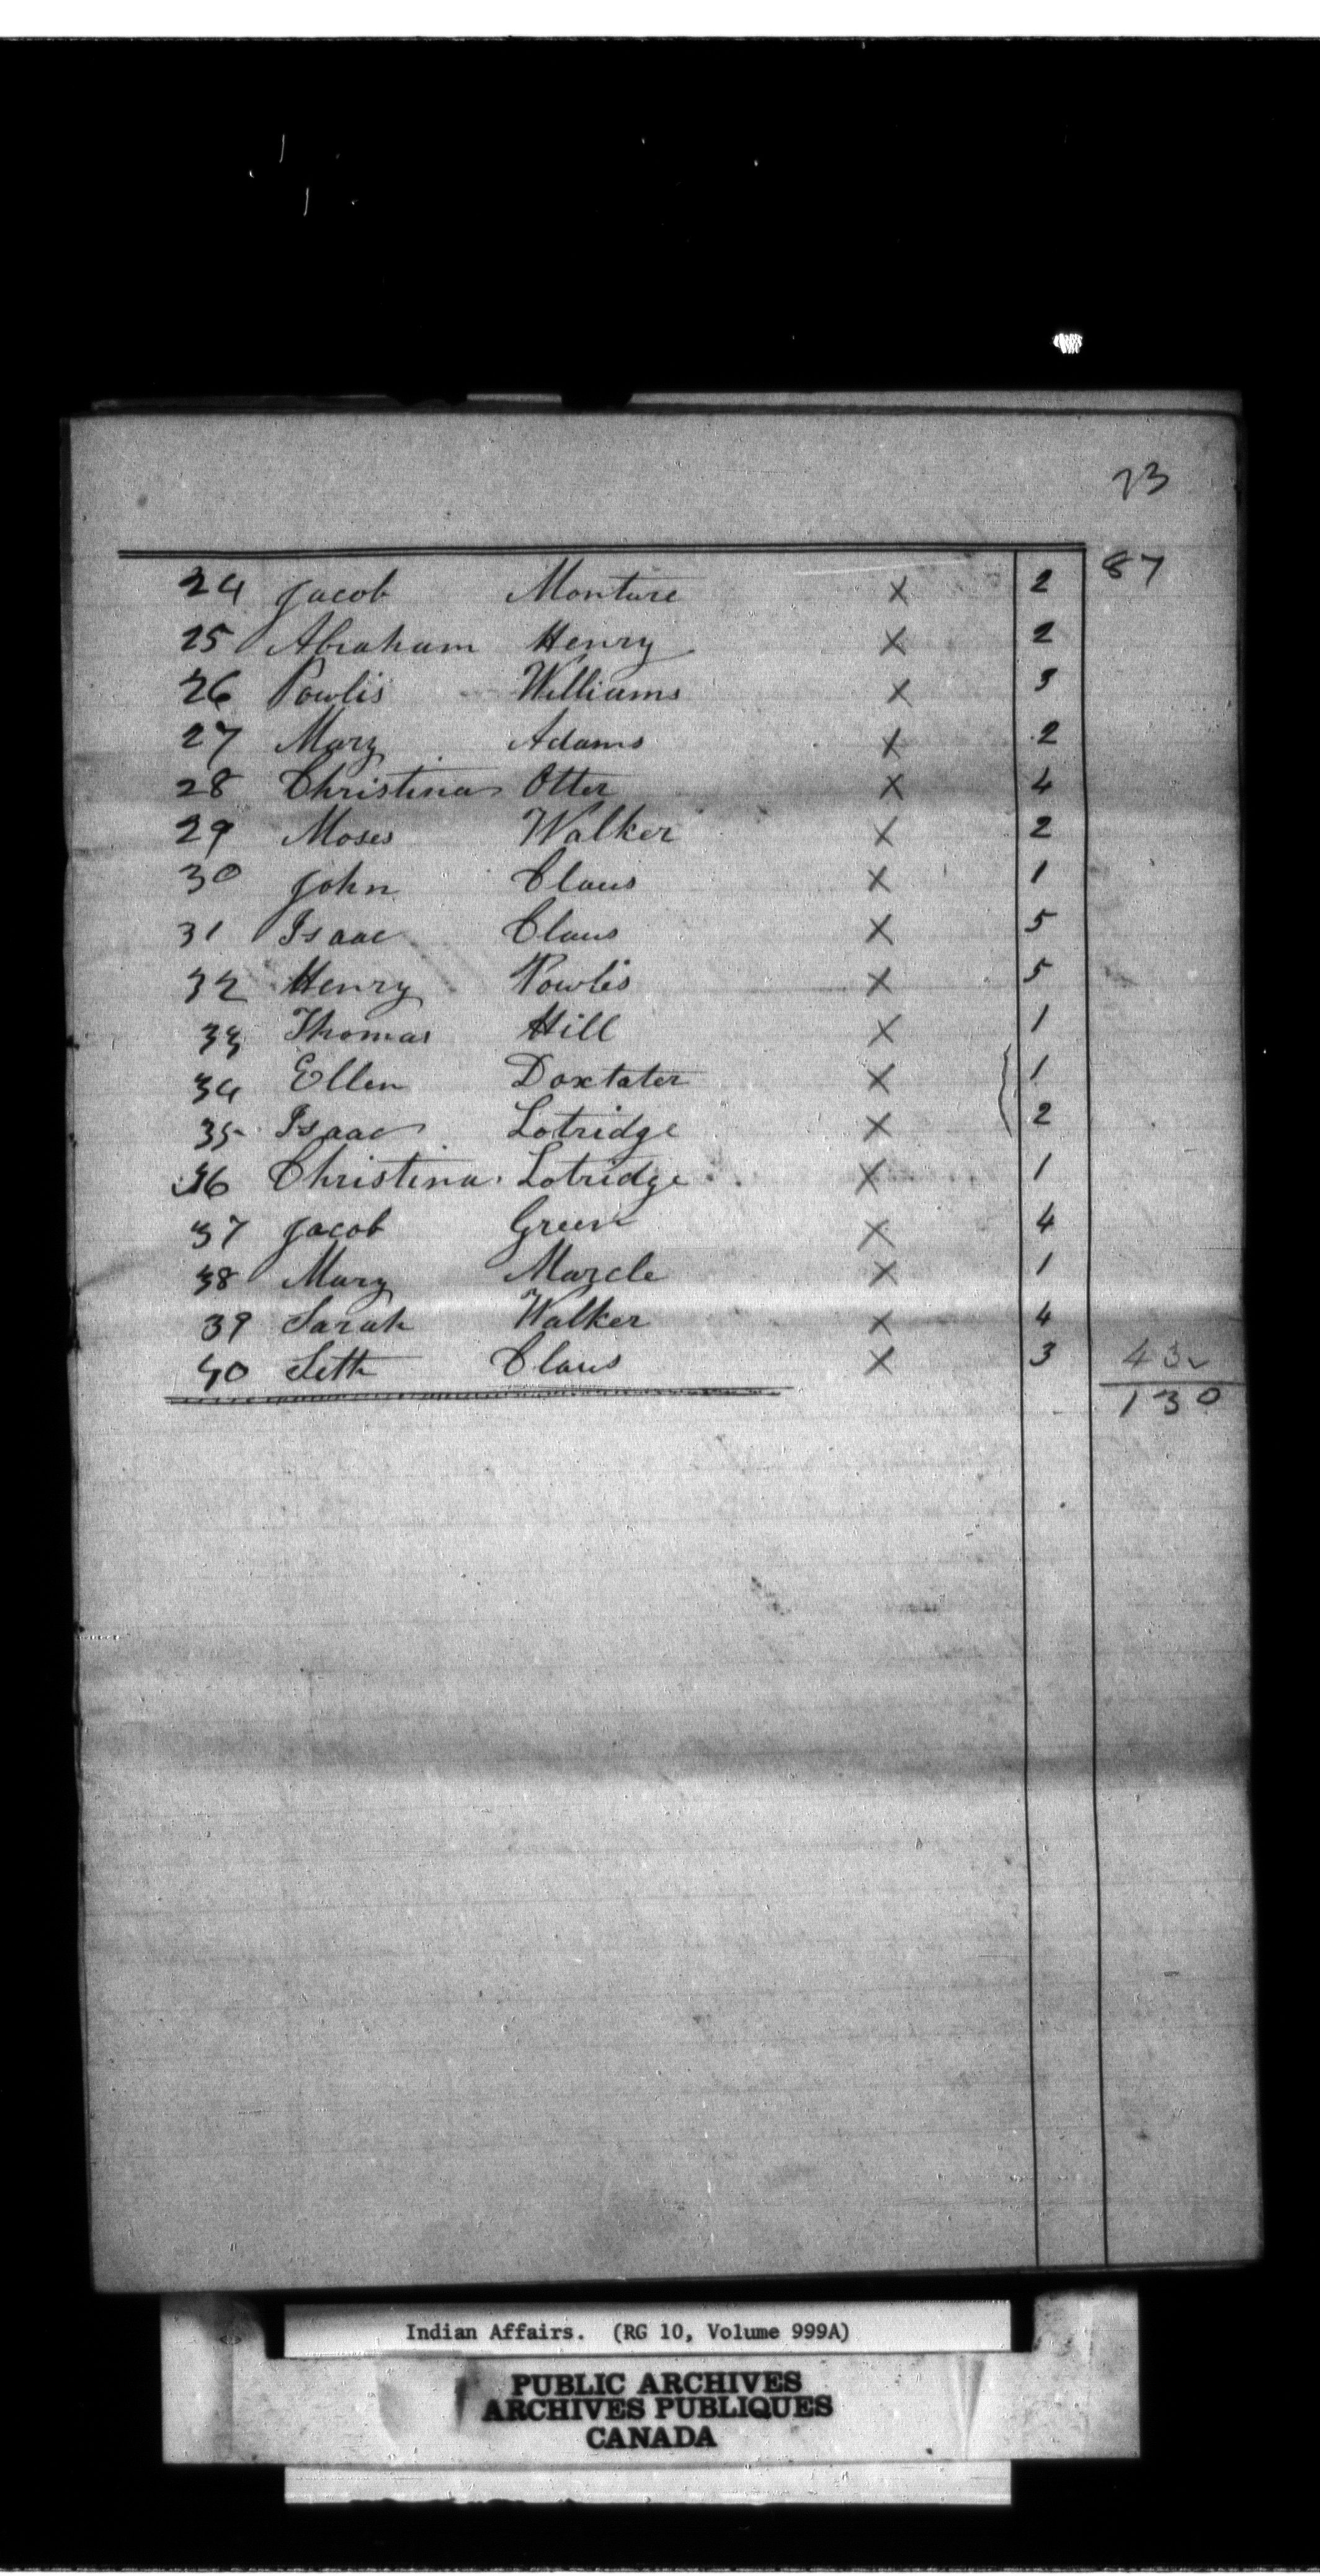 23
87
24 Jacob Monture X 2
25 Abraham Henry X 2
26 Powlis Williams X 3
27 Mary Adams X 2
28 Christina Otter X 4
29 Moses Walker X 2
30 John Claus X 1
31 Isaac Claus X 5
32 Henry Powlis X 5
33 Thomas Hill X 1
34 Ellen Doxtater X 1
35 Isaac Lotridge X 2
36 Christina Lotridge X 1
37 Jacob Green X 4
38 Mary Maracle X 1
39 Sarah Walker X 4
40 Seth Claus X 3 43
130
Indian Affairs. (RG 10, Volume 999A)
PUBLIC ARCHIVES
ARCHIVES PUBLIQUES
CANADA